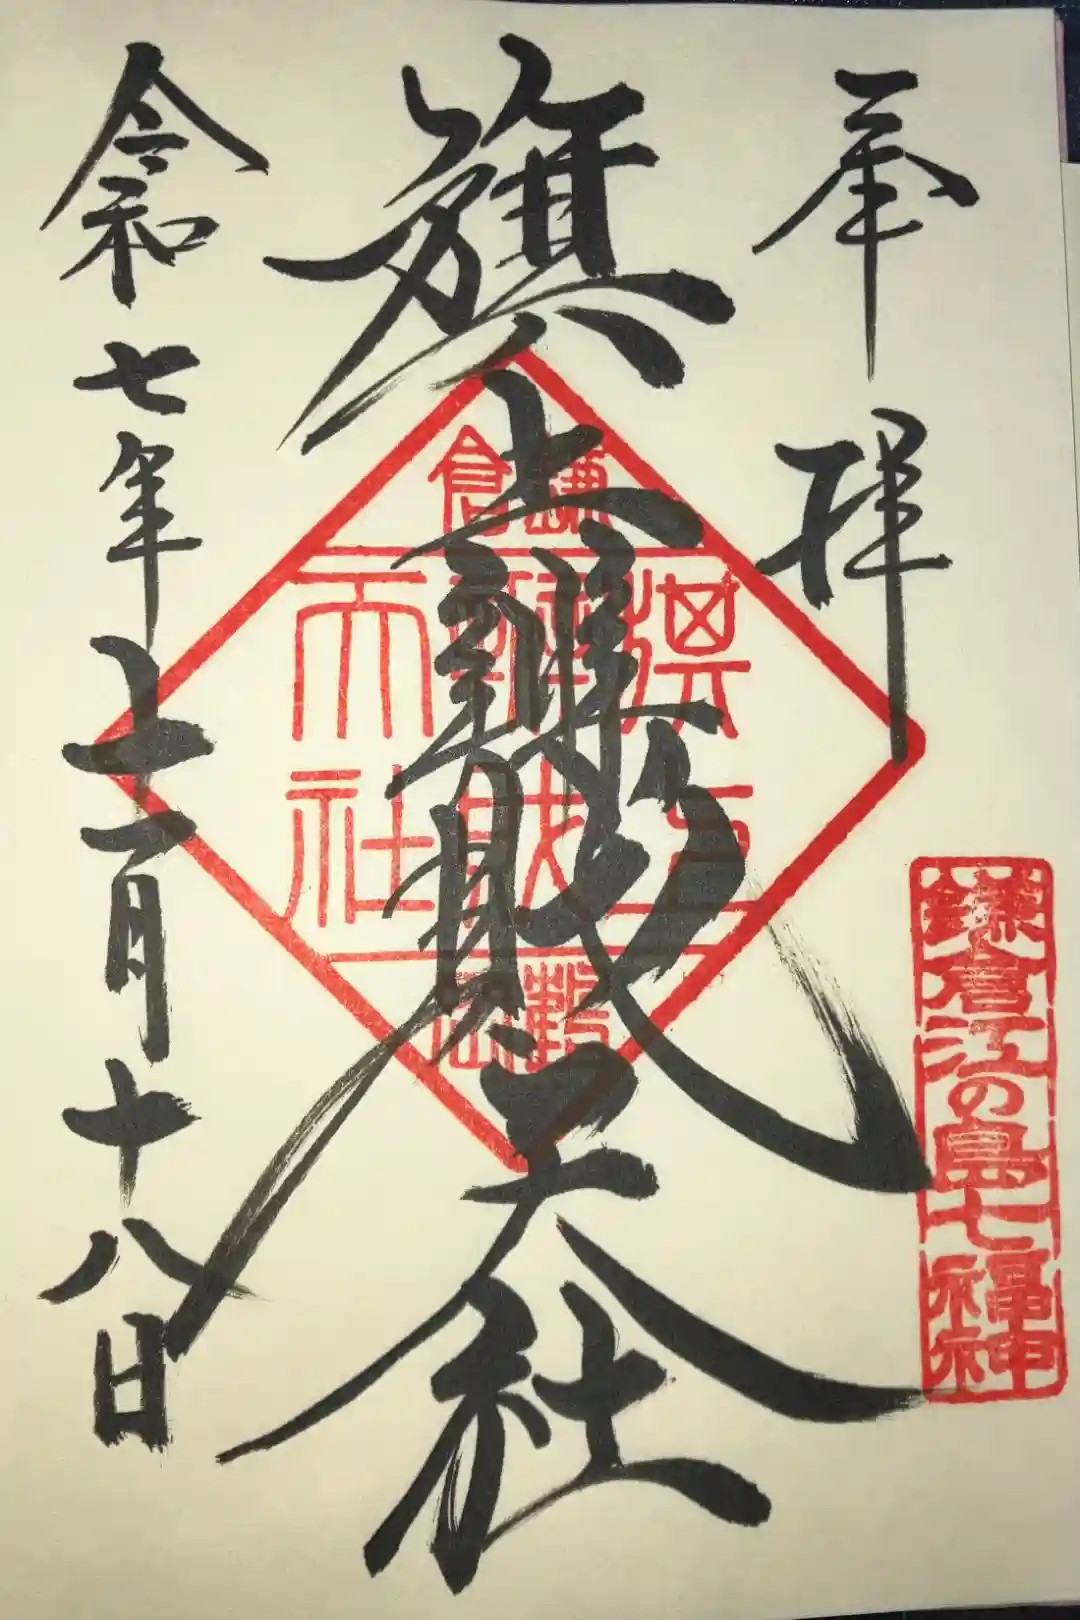 奉拝
鎌倉江の島七福神
旗上辨財天社
鎌倉
旗上
辨財
天社
令和七年十一月十八日